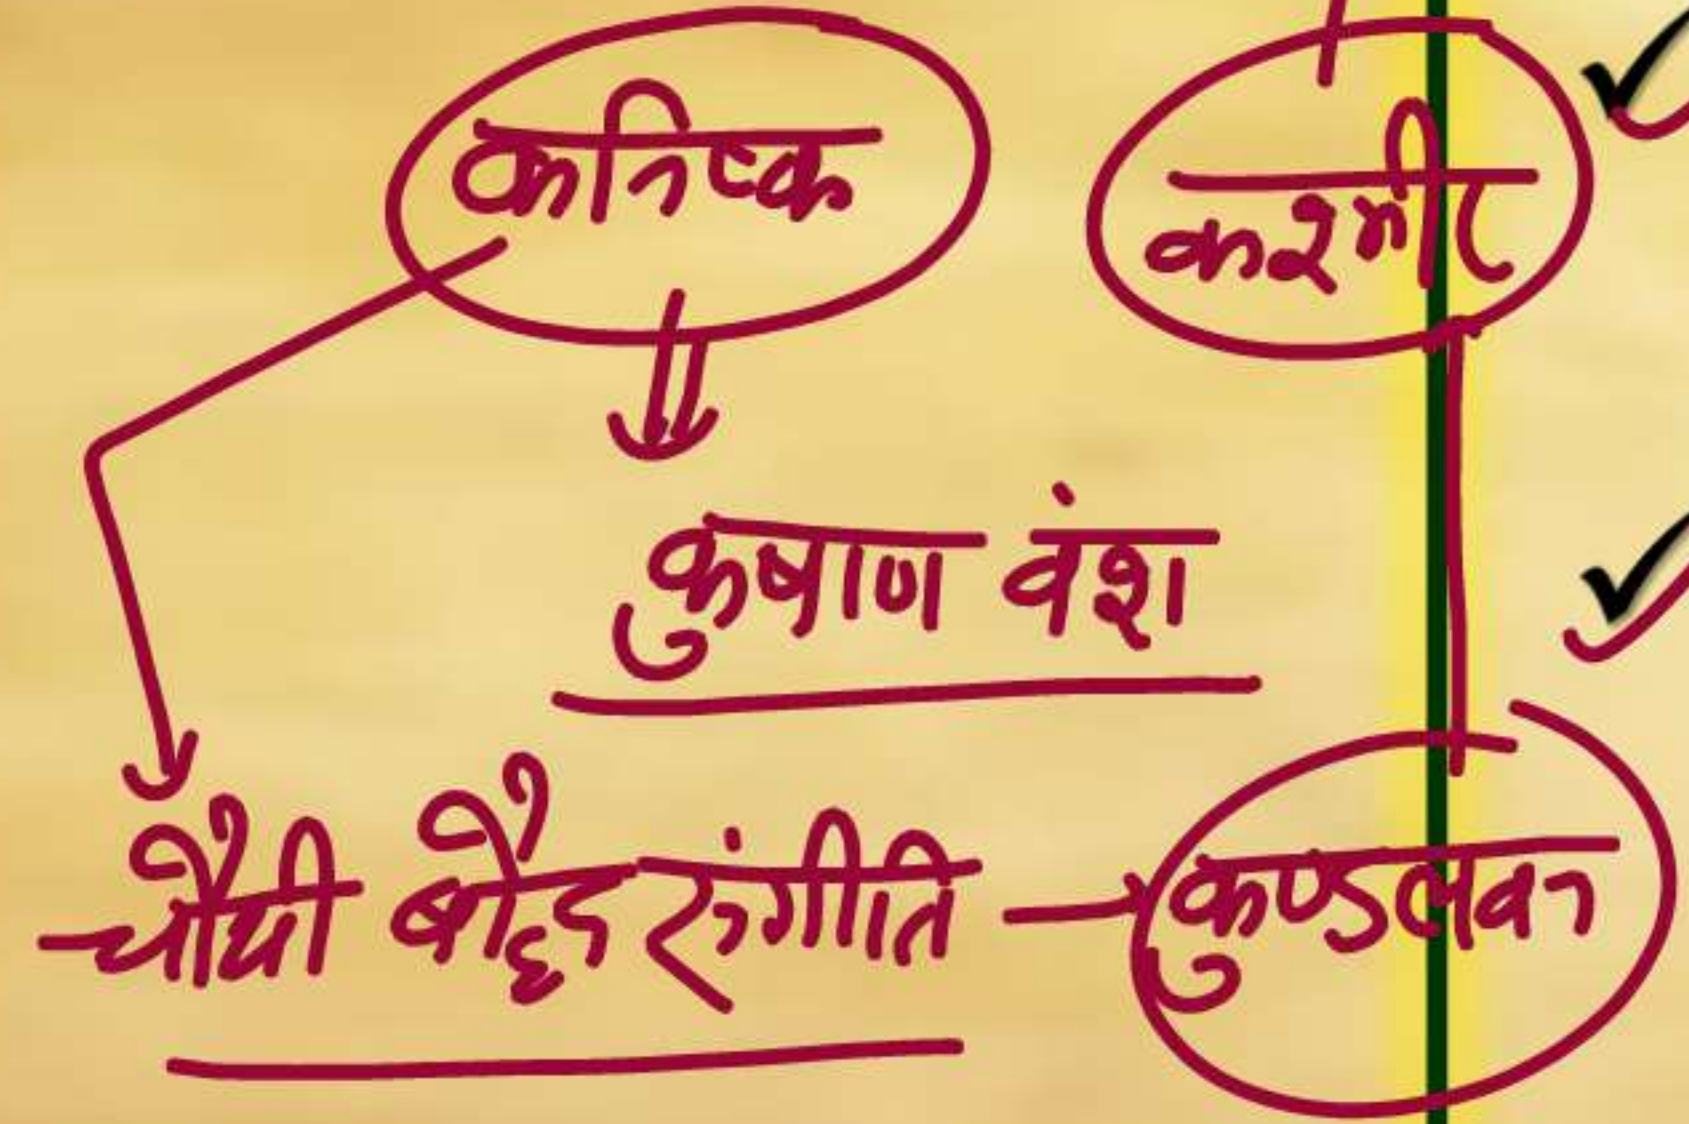 कनिष्क कश्मीर
कुषाण वंश
चौथी बौद्ध संगीति → कुण्डलवन